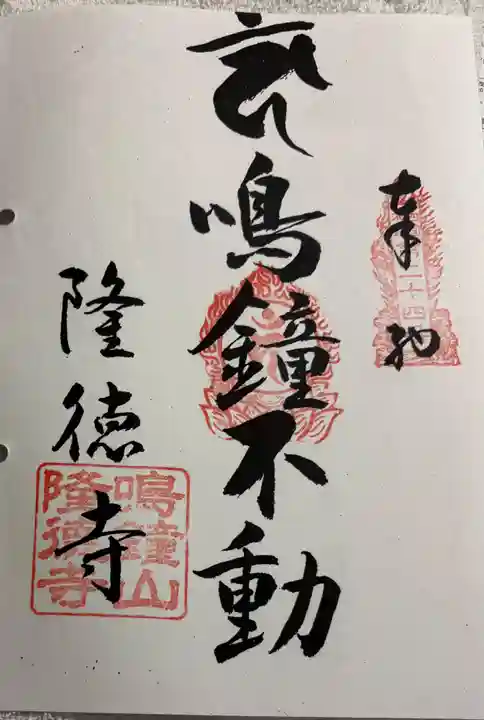 奉納
二十四
鳴鐘不動
隆徳寺
鳴鐘山
隆徳寺